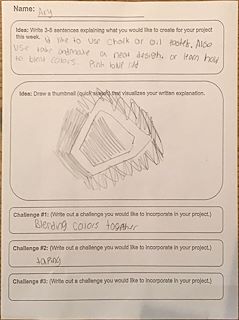 Name: Ary
Idea: Write 3-5 sentences explaining what you would like to create for your project
this week. I'd like to use chalk or oil pastels. Also
use tape and make a neat design. or learn how
to blend colors. Pink blue red
Idea: Draw a thumbnail (quick sketch) that visualizes your written explanation.
Challenge #1: (Write out a challenge you would like to incorporate in your project.)
Blending colors together
Challenge #2: (Write out a challenge you would like to incorporate in your project.)
taping
Challenge #3: (Write out a challenge you would like to incorporate in your project.)